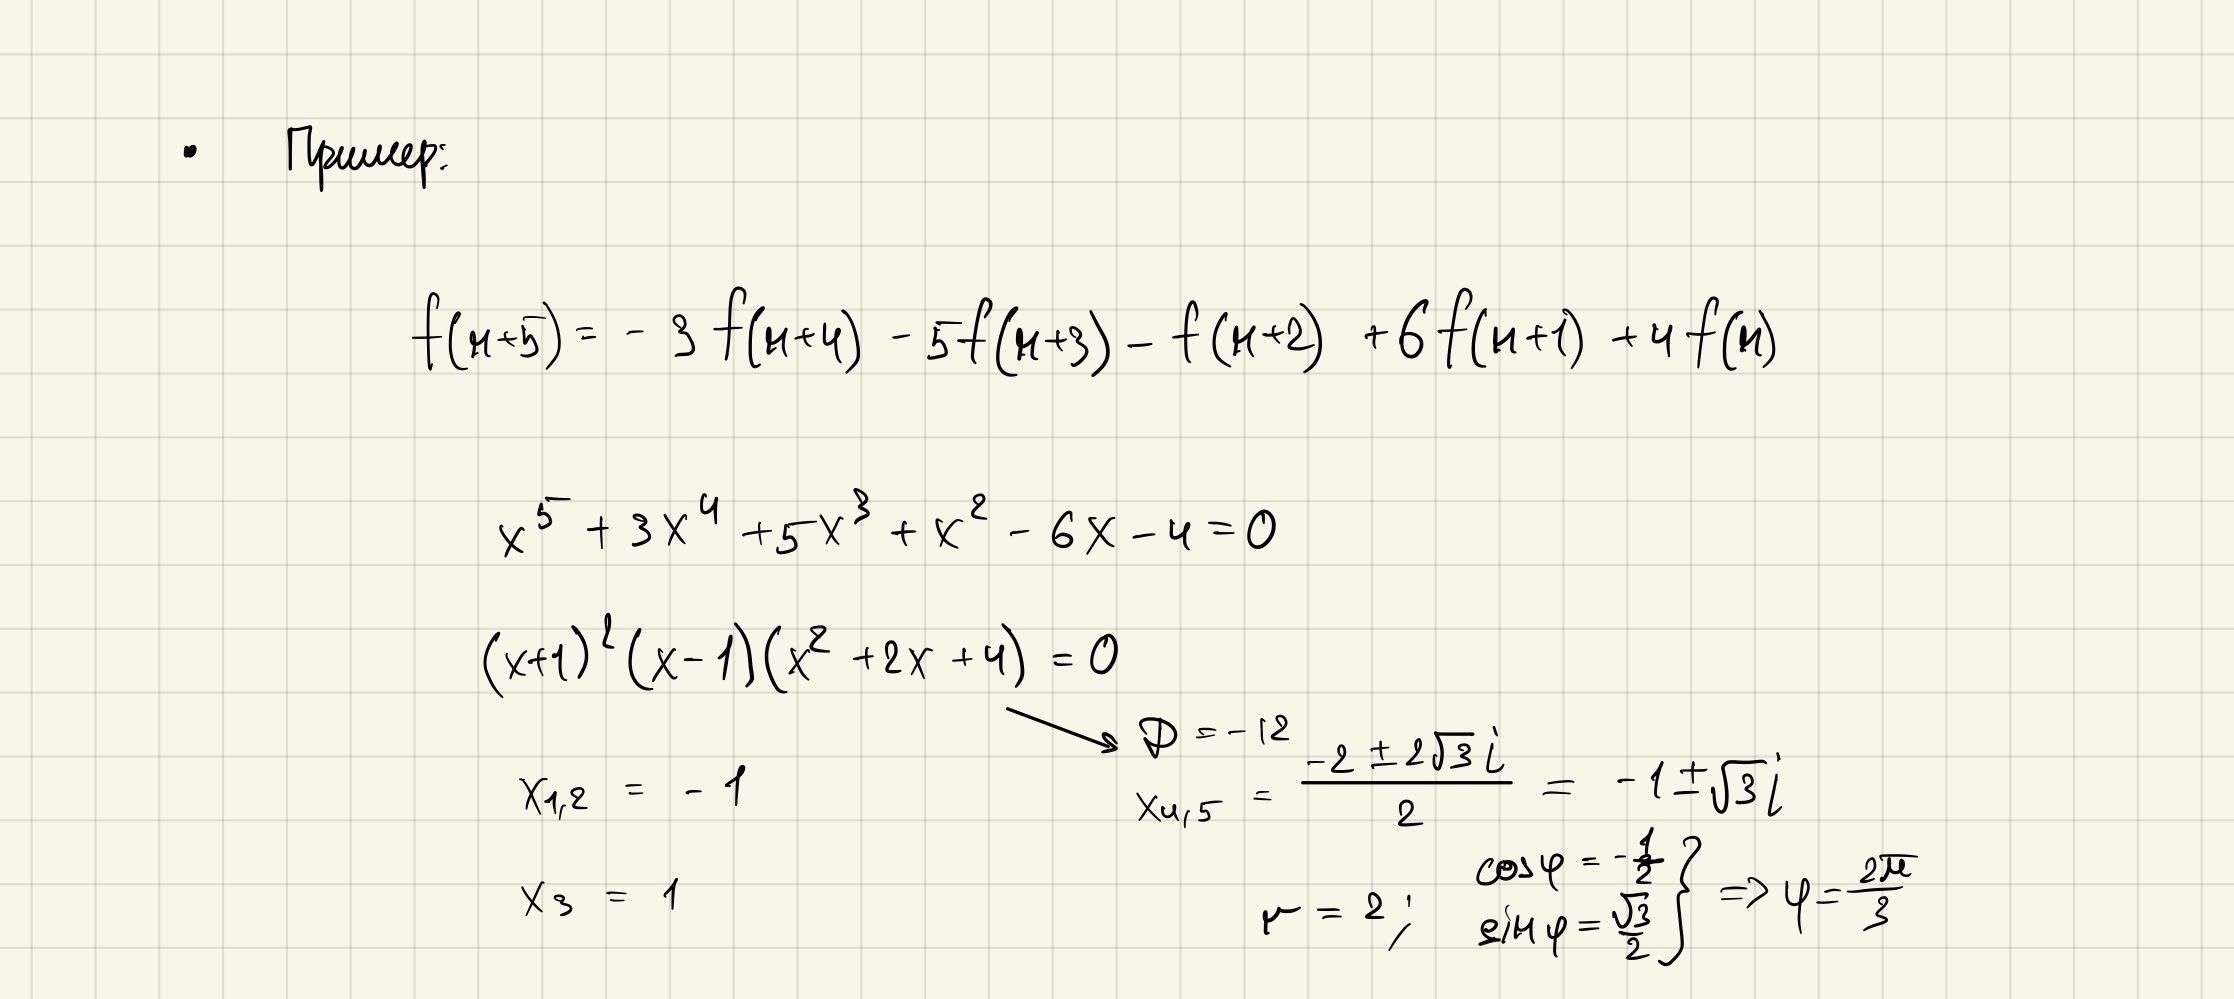 • Пример:
f(n+5) = - 3 f(n+4) - 5f(n+3) - f(n+2) + 6 f(n+1) + 4 f(n)
x⁵ + 3x⁴ + 5x³ + x² - 6x - 4 = 0
(x+1)² (x-1)(x² + 2x + 4) = 0
D = -12
x₁,₂ = - 1
x₄,₅ = (-2 ± 2√3 i)/2 = -1 ± √3 i
x₃ = 1
r = 2; cos φ = -1/2 sin φ = √3/2 } => φ = 2π/3